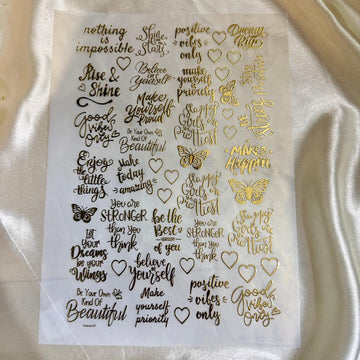 nothing is
impossible
Shine
Like the
Stars
positive
vibes
only
Dream
Big
Rise &
Shine
Believe
in
Yourself
make
yourself
priority
Stay
Make
Yourself
Proud
Good
vibes
only
Be Your Own
Kind Of
Beautiful
Happy
Girls are
the
Prettiest
MAKE it
Happen
Enjoy
the
little
things
Make
today
amazing
Happy
Girls are
the
Prettiest
YOU are
STRONGER
than you
think
be the
Best
VERSION
of you
YOU are
STRONGER
than you
think
Happy
Girls are
the
Prettiest
Let
Your
Dreams
be your
Wings
believe
in
Yourself
Be Your Own
Kind Of
Beautiful
Make
yourself
priority
positive
vibes
only
Good
vibes
only